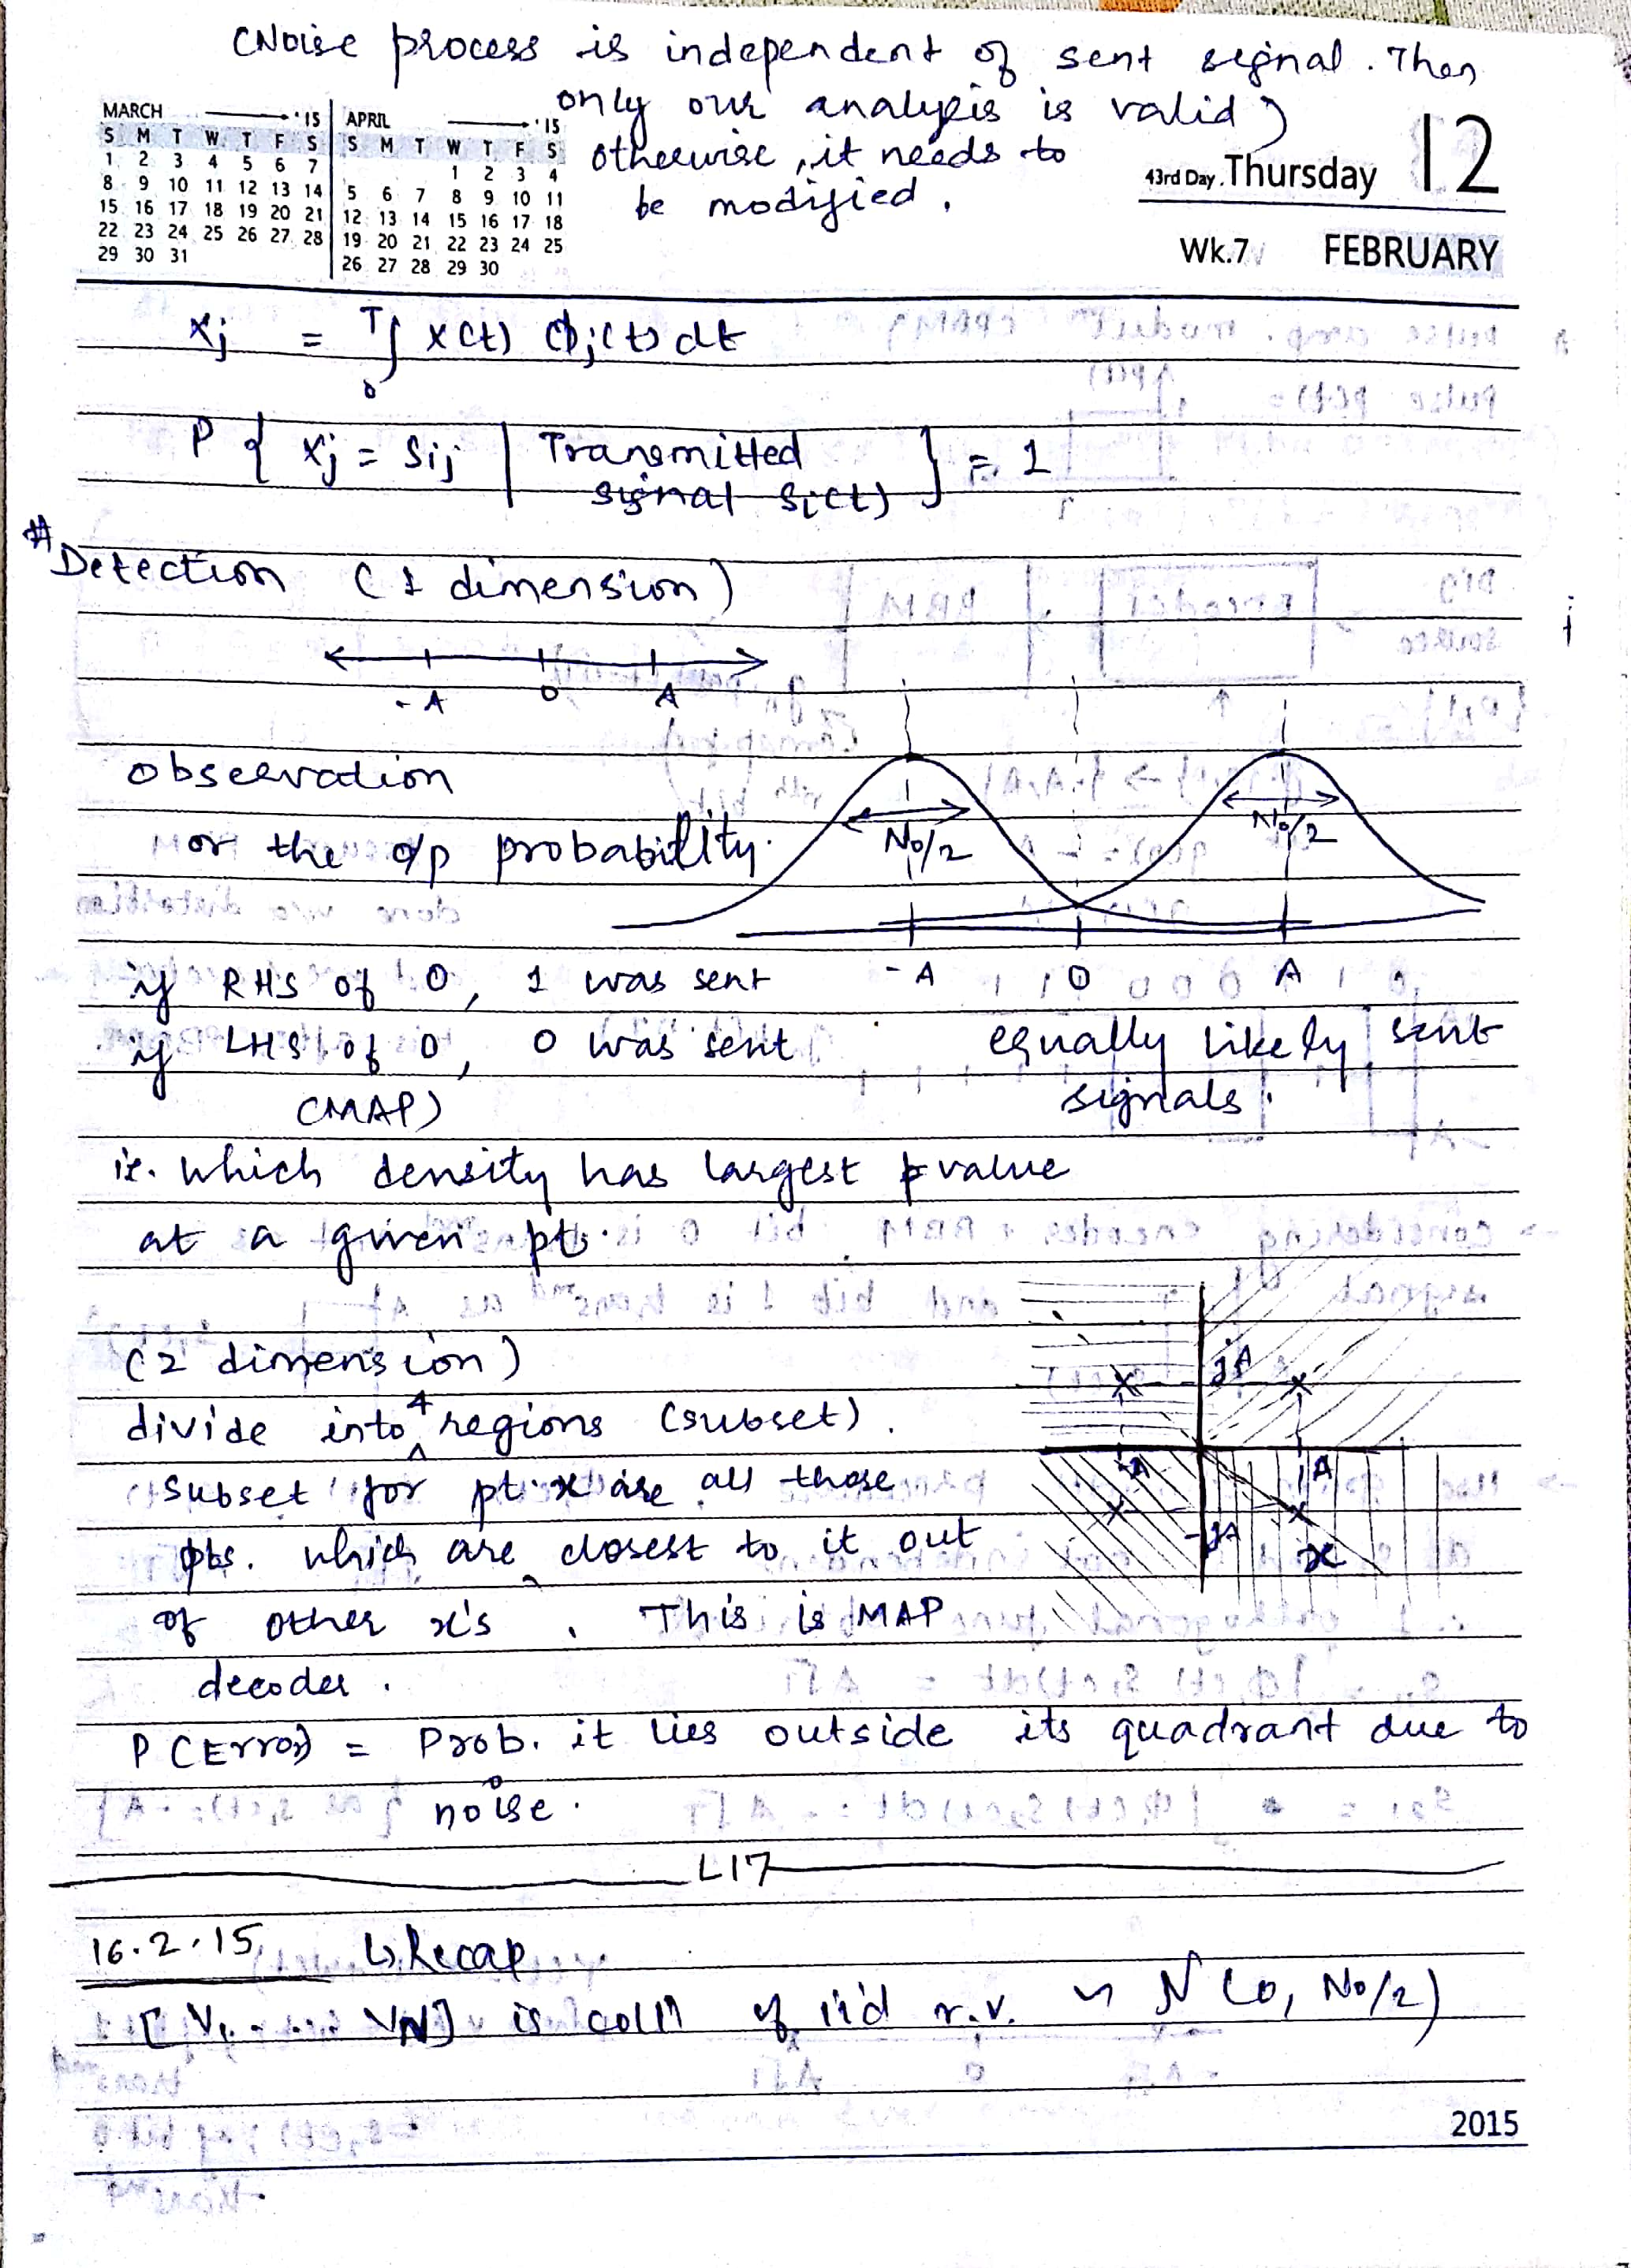 (Noise process is independent of sent signal. Then
only our analysis is valid)
otherwise, it needs to
be modified.
MARCH '15
S M T W T F S
1 2 3 4 5 6 7
8 9 10 11 12 13 14
15 16 17 18 19 20 21
22 23 24 25 26 27 28
29 30 31
APRIL '15
S M T W T F S
1 2 3 4
5 6 7 8 9 10 11
12 13 14 15 16 17 18
19 20 21 22 23 24 25
26 27 28 29 30
43rd Day. Thursday 12
Wk.7 FEBRUARY
xj = T∫0 x(t) ϕj(t) dt
P { xj = Sij | Transmitted signal Si(t) } = 1
# Detection (1 dimension)
-A 0 A
observation
or the o/p probability.
No/2 No/2
-A 0 A
if RHS of 0, 1 was sent
if LHS of 0, 0 was sent
equally likely sent
signals.
(MAP)
ie. which density has largest value
at a given pt.
(2 dimension)
divide into 4 regions (subset).
subset for pt x are all those
pts. which are closest to it out
of other x's. This is MAP
decoder.
jA
-A A
-jA
x
P(Error) = Prob. it lies outside its quadrant due to
noise.
L17
16.2.15 ↳ Recap
[V1 .... VN] is colln of iid r.v. ~ N(0, No/2)
2015